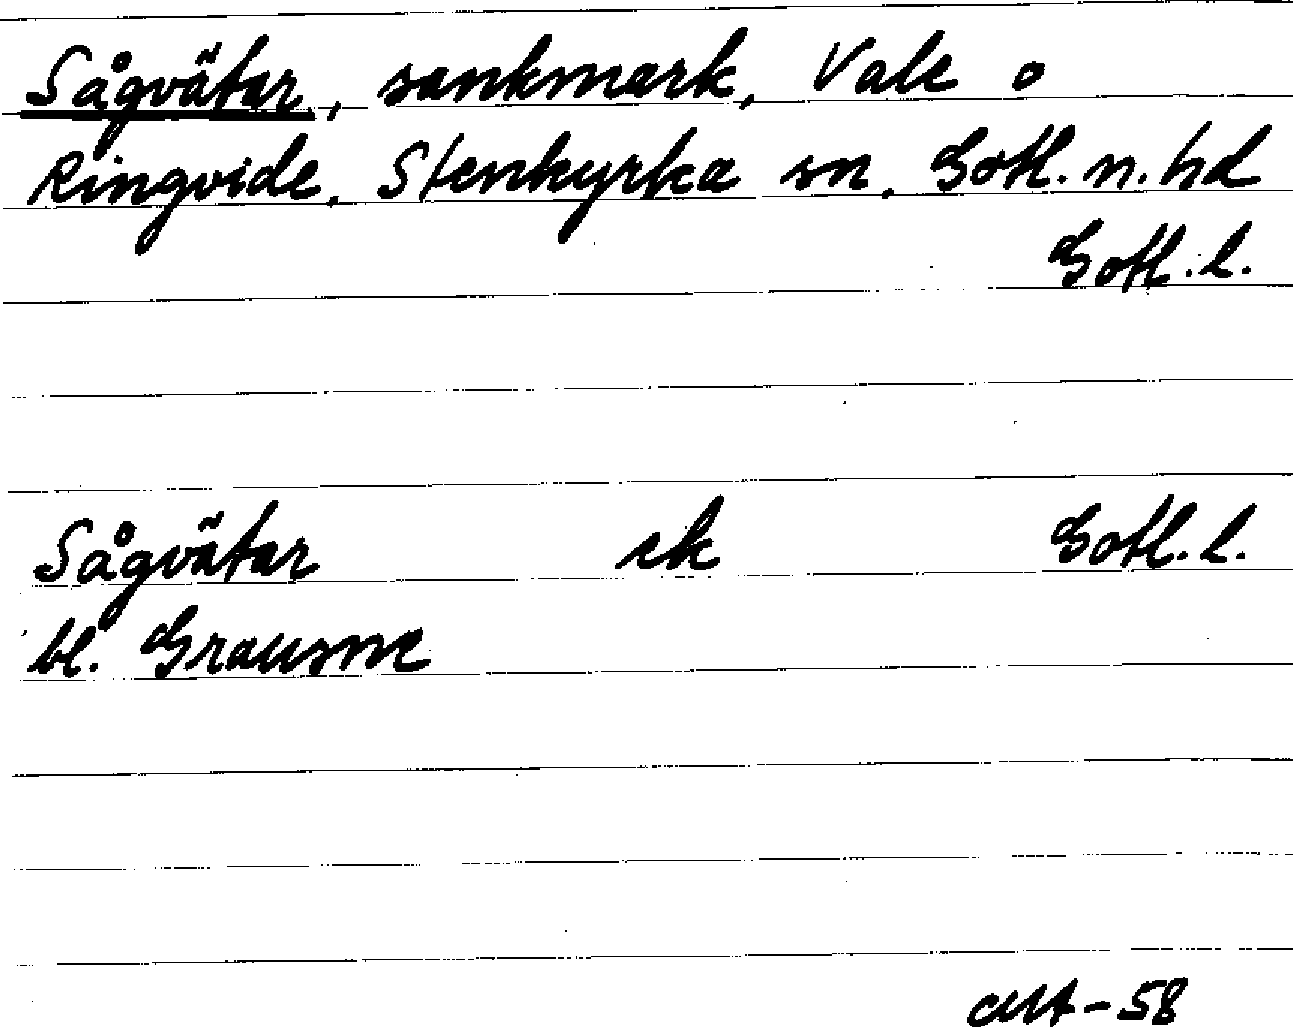 Sågvätar, sankmark, Vale o
Ringvide, Stenkyrka sn, Gotl. n. hd
Gotl. l.
Sågvätar ek Gotl. l.
bl. Grausne
-58